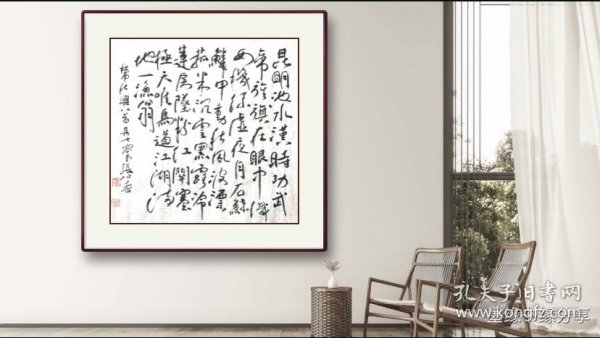 昆明池水漢時功武
帝旌旗在眼中織
女機絲虛夜月石鯨
鱗甲動秋風波漂
菰米沉雲黑露冷
蓮房墜粉紅關塞
極天唯鳥道江湖滿
地一漁翁
秋興八首其七
孔夫子旧书网
www.kongfz.com
分享